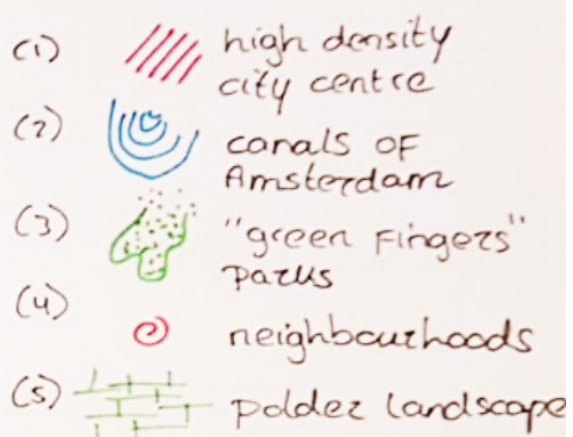 (1) high density
city centre
(2) canals of
Amsterdam
(3) "green Fingers"
parks
(4) neighbourhoods
(5) polder landscape